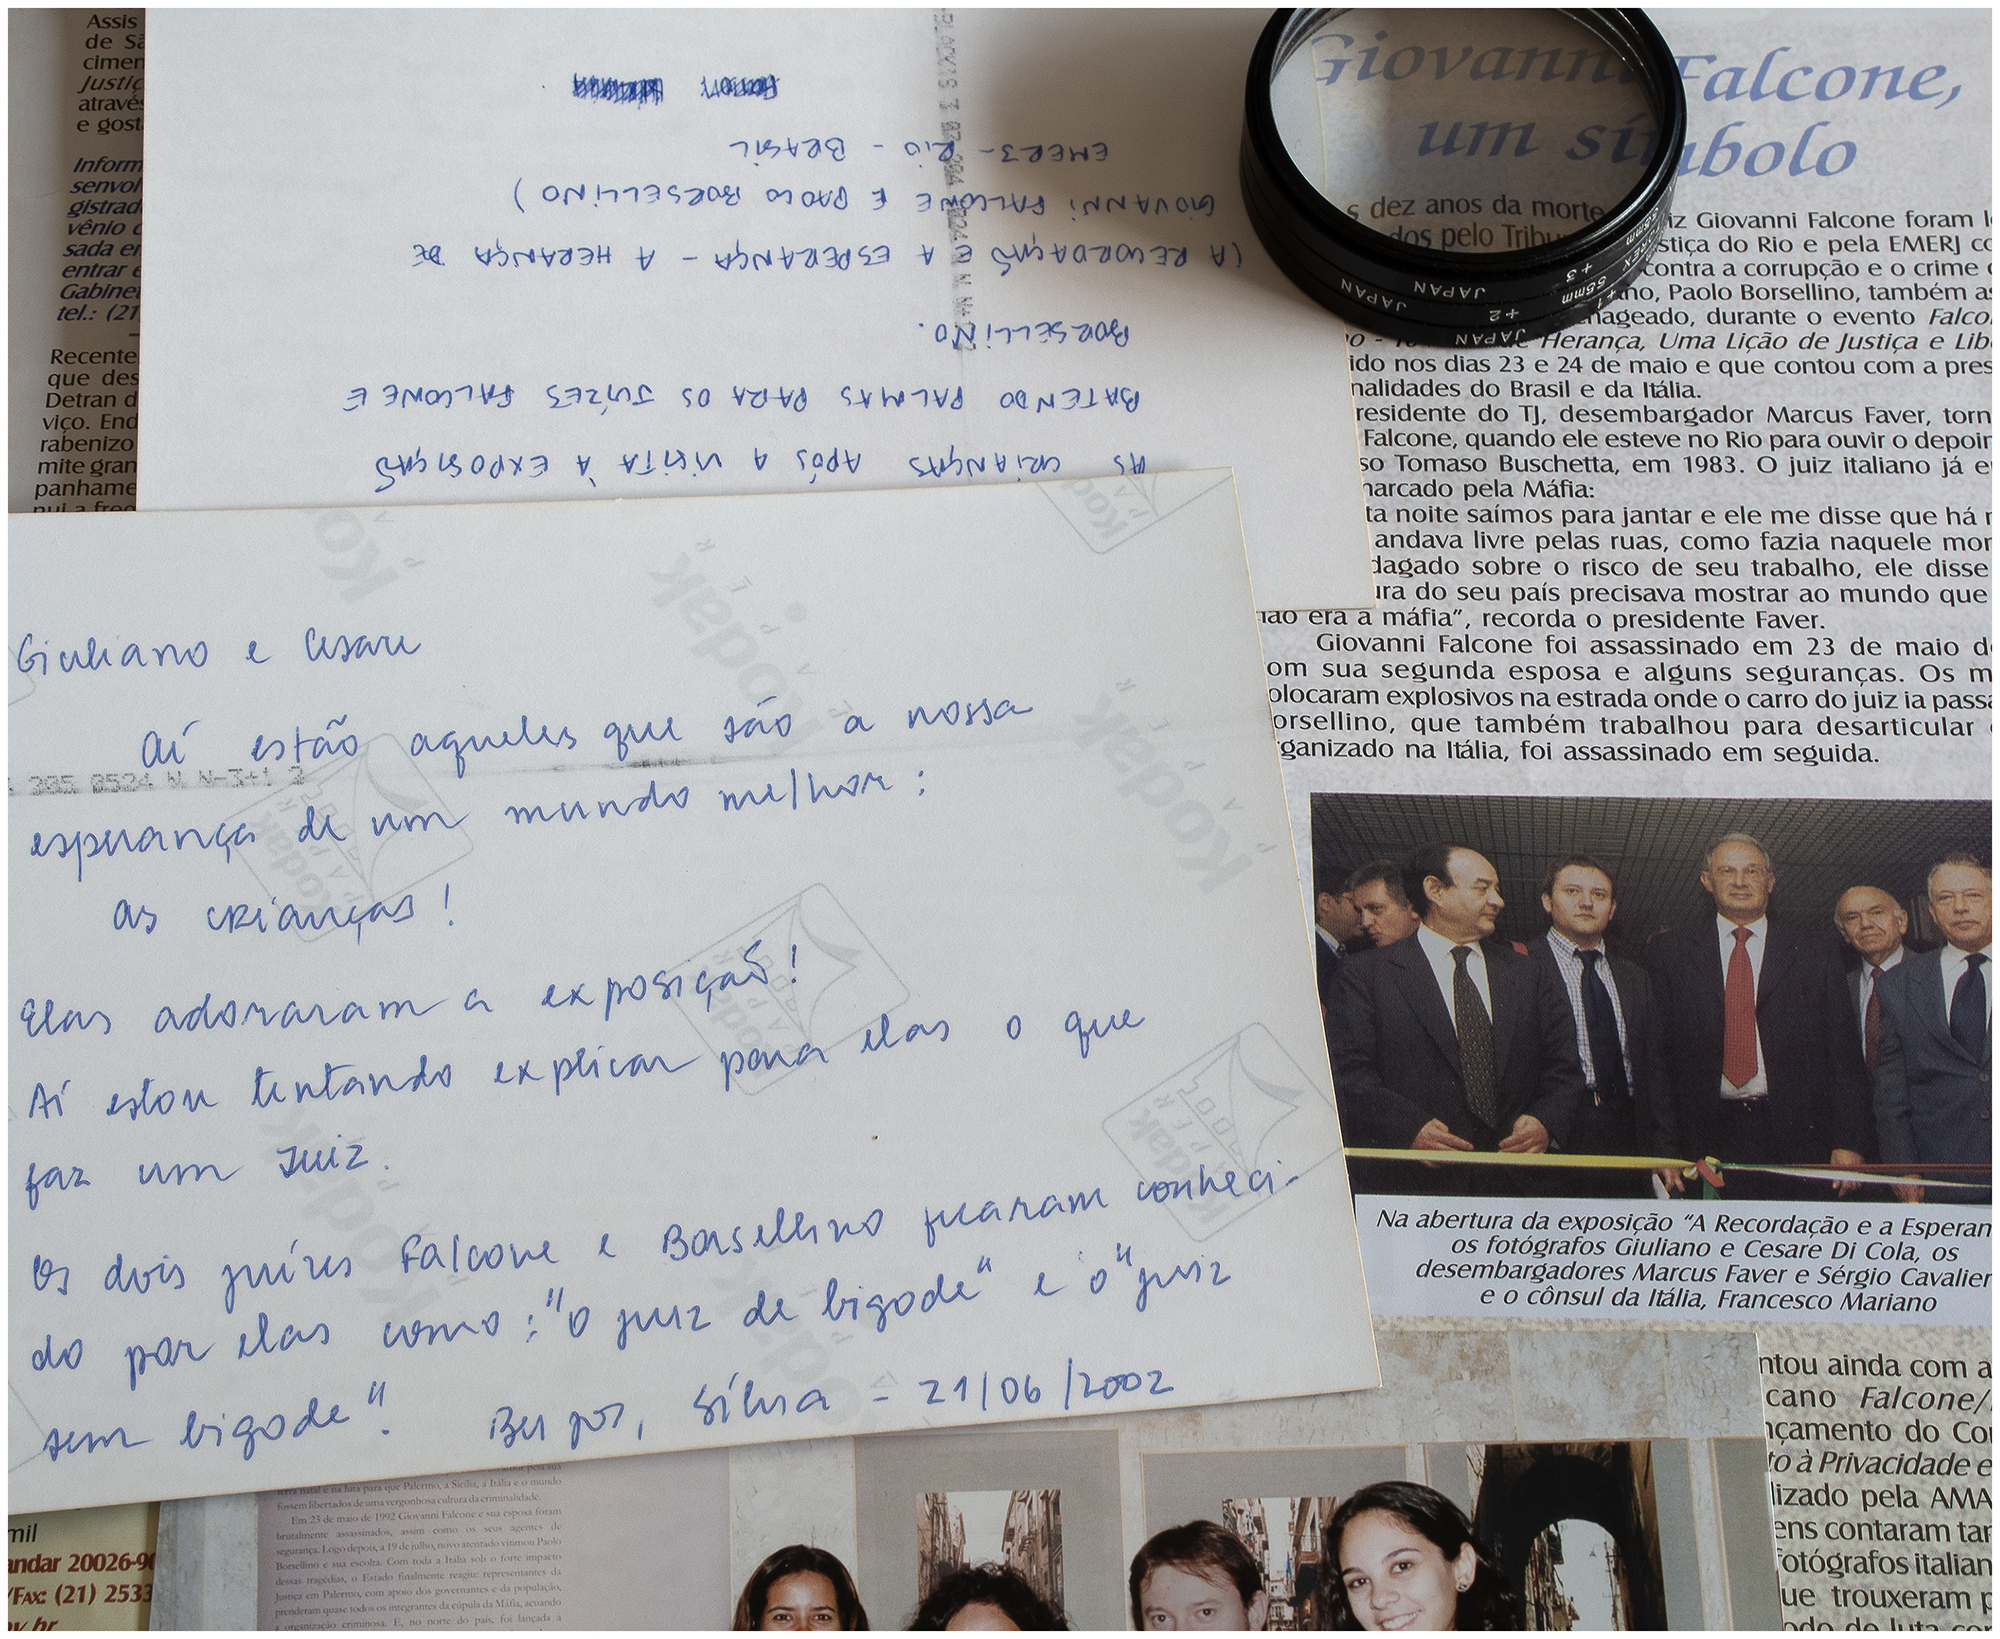 Assis
de Sã
cimen
Justiç
através
e gost
Inform
senvol
gistrad
vênio c
sada er
entrar e
Gabinet
tel.: (21
Recente
que des
Detran d
viço. End
rabenizo
mite gran
panhame
nui a freq
AS CRIANÇAS APÓS A VISITA À EXPOSIÇÃO
BATENDO PALMAS PARA OS JUÍZES FALCONE E
BORSELLINO.
(A RECORDAÇÃO E A ESPERANÇA - A HERANÇA DE
GIOVANNI FALCONE E PAOLO BORSELLINO)
EMERJ - RIO - BRASIL
Giovanni Falcone,
um símbolo
s dez anos da morte iz Giovanni Falcone foram l
dos pelo Tribu stiça do Rio e pela EMERJ co
contra a corrupção e o crime
no, Paolo Borsellino, também as
nageado, durante o evento Falco
Herança, Uma Lição de Justiça e Lib
ido nos dias 23 e 24 de maio e que contou com a pres
nalidades do Brasil e da Itália.
residente do TJ, desembargador Marcus Faver, torn
Falcone, quando ele esteve no Rio para ouvir o depoin
so Tomaso Buschetta, em 1983. O juiz italiano já e
narcado pela Máfia:
ta noite saímos para jantar e ele me disse que há
andava livre pelas ruas, como fazia naquele mor
dagado sobre o risco de seu trabalho, ele disse
ura do seu país precisava mostrar ao mundo que
ão era a máfia”, recorda o presidente Faver.
Giovanni Falcone foi assassinado em 23 de maio d
om sua segunda esposa e alguns seguranças. Os m
olocaram explosivos na estrada onde o carro do juiz ia passa
orsellino, que também trabalhou para desarticular
rganizado na Itália, foi assassinado em seguida.
JAPAN
JAPAN
JAPAN
+3
+2
+1
55mm
Kodak
Giuliano e Cesare
Aí estão aqueles que são a nossa
esperança de um mundo melhor:
as crianças!
Elas adoraram a exposição!
Aí estou tentando explicar para elas o que
faz um Juiz.
Os dois juízes Falcone e Borsellino ficaram conheci-
do por elas como: "o juiz de bigode" e o "juiz
sem bigode". Beijos, Sílvia - 21/06/2002
Na abertura da exposição “A Recordação e a Esperan
os fotógrafos Giuliano e Cesare Di Cola, os
desembargadores Marcus Faver e Sérgio Cavalier
e o cônsul da Itália, Francesco Mariano
ntou ainda com a
cano Falcone/
nçamento do Co
to à Privacidade e
lizado pela AMA
ens contaram tar
fotógrafos italian
ue trouxeram p
odo de luta con
terra natal e na luta para que Palermo, a Sicília, a Itália e o mundo
fossem libertados de uma vergonhosa cultura da criminalidade.
Em 23 de maio de 1992 Giovanni Falcone e sua esposa foram
brutalmente assassinados, assim como os seus agentes de
segurança. Logo depois, a 19 de julho, novo atentado vitimou Paolo
Borsellino e sua escolta. Com toda a Itália sob o forte impacto
dessas tragédias, o Estado finalmente reagiu: representantes da
Justiça em Palermo, com apoio dos governantes e da população,
prenderam quase todos os integrantes da cúpula da Máfia, acuando
a organização criminosa. E, no norte do país, foi lançada a
mil
andar 20026-90
/FAX: (21) 2533
ov.br